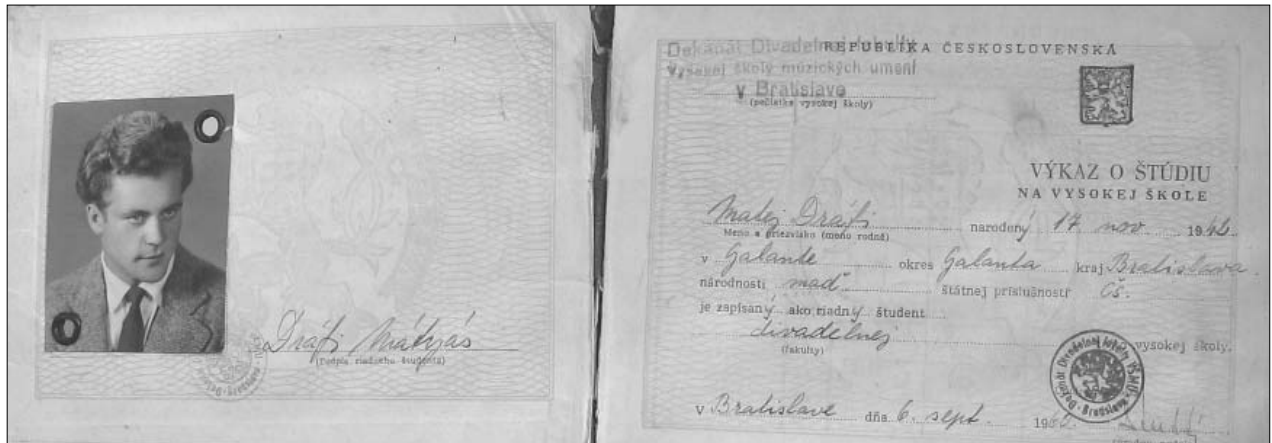 Dráfi Mátyás
(Podpis riadneho študenta)
Dekanát Divadelnej fakulty
Vysokej školy múzických umení
v Bratislave
(pečiatka vysokej školy)
REPUBLIKA ČESKOSLOVENSKÁ
VÝKAZ O ŠTÚDIU
NA VYSOKEJ ŠKOLE
Matej Dráfi narodený 17. nov. 1942
Meno a priezvisko (meno rodné)
v Galante okres Galanta kraj Bratislava
národnosti maď. štátnej príslušnosti čs.
je zapísaný ako riadny študent
divadelnej vysokej školy.
(fakulty)
Dekanát Divadelnej fakulty VŠMU Bratislava
v Bratislave dňa 6. sept. 196